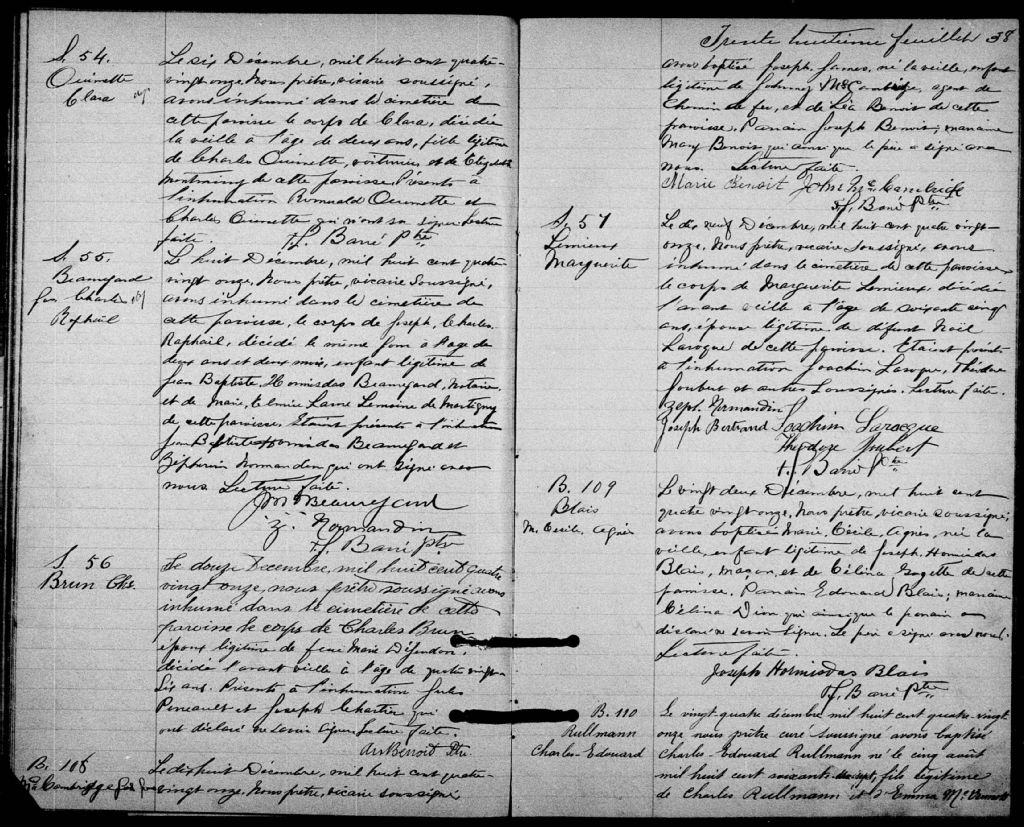 S. 54.
Ouimette
Clara
Le six Décembre, mil huit cent quatre-
vingt onze, Nous prêtre, vicaire soussigné,
avons inhumé dans le cimetière de
cette paroisse le corps de Clara, décédée
la veille à l'âge de deux ans, fille légitime
de Charles Ouimette, voiturier, et de Elizabeth
Montminy de cette paroisse. Présents à
l'inhumation Romuald Ouimette et
Charles Ouimette qui n'ont su signer. Lecture
faite. Barré Ptre
S. 55.
Beauregard
Jos Charles
Raphaël
Le huit Décembre, mil huit cent quatre-
vingt onze, Nous prêtre, vicaire soussigné,
avons inhumé dans le cimetière de
cette paroisse, le corps de Joseph, Charles
Raphaël, décédé le même jour à l'âge de
deux ans et deux mois, enfant légitime de
Jean Baptiste Hormisdas Beauregard, Notaire
et de Marie, Laure Lemoine de Martigny
de cette paroisse. Etaient présents à
Jean Baptiste Hormisdas Beauregard et
Zéphirin Normandin qui ont signé avec
nous Lecture faite.
Beauregard
Z. Normandin
Barré Ptre
S. 56
Brun Chs.
Le douze Décembre, mil huit cent quatre
vingt onze, nous prêtre soussigné avons
inhumé dans le cimetière de cette
paroisse le corps de Charles Brun
époux légitime de feue Marie
décédé l'avant veille à l'âge de quatre vingt
six ans. Présents à l'inhumation Jules
et Joseph Chartier qui
ont déclaré ne savoir signer. Lecture faite.
Benoit Ptre
B. 108
Mc Cambridge Jos Jas
Le dix huit Décembre, mil huit cent quatre-
vingt onze, Nous prêtre, vicaire soussigné
Trente huitième feuillet 38
avons baptisé Joseph James, né la veille, enfant
légitime de Johnny McCambridge, agent de
Chemin de fer, et de Léa Benoit de cette
paroisse. Parrain Joseph Benoit; marraine
Mary Benoit qui ainsi que le père a signé avec
nous. Lecture faite.
Marie Benoit John McCambridge
Barré Ptre
S. 57
Lemieux
Marguerite
Le dix neuf Décembre, mil huit cent quatre vingt-
onze, Nous prêtre, vicaire soussigné, avons
inhumé dans le cimetière de cette paroisse
le corps de Marguerite Lemieux, décédée
l'avant veille à l'âge de soixante cinq
ans, épouse légitime de défunt Noël
Laroque de cette paroisse. Etaient présents
à l'inhumation Joachim Laroque, Théodore
Joubert et autres soussignés. Lecture faite.
Zeph. Normandin
Joseph Bertrand Joachim Larocque
Théodore Joubert
Barré Ptre
B. 109
Blais
M. Cécile, Agnès
Le vingt deux Décembre, mil huit cent
quatre vingt onze, Nous prêtre, vicaire soussigné,
avons baptisé Marie, Cécile, Agnès, née la
veille, enfant légitime de Joseph, Hormisdas
Blais, Maçon, et de Célina Goyette de cette
paroisse. Parrain Edouard Blais; marraine
Célina Dion qui ainsi que le parrain a
déclaré ne savoir signer. Le père a signé avec nous.
Lecture faite.
Joseph Hormisdas Blais
Barré Ptre
B. 110
Rullmann
Charles-Edouard
Le vingt-quatre décembre mil huit cent quatre-vingt-
onze nous prêtre curé soussigné avons baptisé
Charles-Edouard Rullmann né le cinq août
mil huit cent soixante fils légitime
de Charles Rullmann et d'Emma